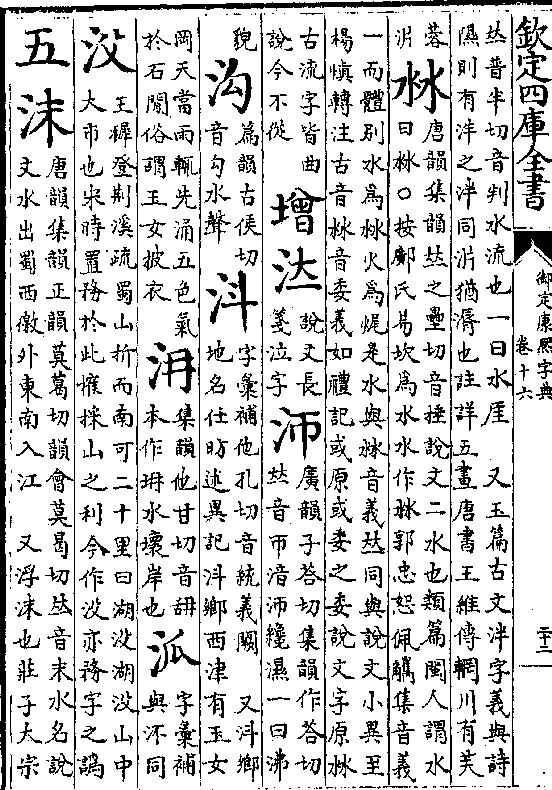 欽定四庫全書
御定康熙字典
卷十六
二十二
𠀤普半切音判水流也一曰水厓 又玉篇古文泮字義與詩
隰則有泮之泮同沜猶濱也註詳五畫唐書王維傳輞川有芙
蓉
沜
沝
唐韻集韻𠀤之壘切音捶說文二水也類篇閩人謂水
曰沝○按鄺氏易坎為水水作沝郭忠恕佩觿集音義
一而體別水為沝火為㷄是水與沝音義𠀤同與說文小異至
楊慎轉注古音沝音委義如禮記或原或委之委說文字原沝
古流字皆曲
說今不從
增
說文長
箋泣字
沞
廣韻子荅切集韻作荅切
𠀤音帀湆沞纔濕一曰沸
貌
沟
篇韻古侯切
音勾水聲
字彙補他孔切音統義闕 又鄉
地名任昉述異記鄉西津有玉女
岡天當雨輒先涌五色氣
於石間俗謂玉女披衣
集韻他甘切音
本作坍水壞岸也
泒
字彙補
與沠同
㳇
王穉登荆溪疏蜀山折而南可二十里曰湖㳇湖㳇山中
大市也宋時置務於此榷採山之利今作㳇亦務字之譌
五
沫
唐韻集韻正韻莫葛切韻會莫曷切𠀤音末水名說
文水出蜀西徼外東南入江 又浮沫也莊子大宗